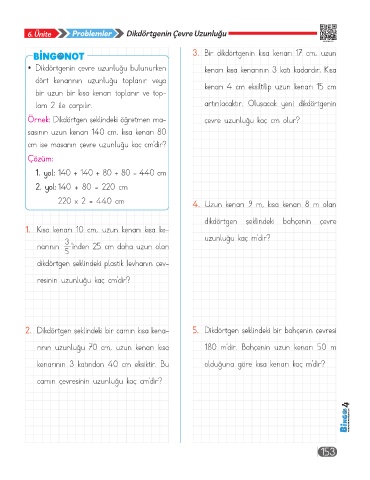 6. Ünite Problemler Dikdörtgenin Çevre Uzunluğu
BİNGONOT
• Dikdörtgenin çevre uzunluğu bulunurken
dört kenarının uzunluğu toplanır veya
bir uzun bir kısa kenarı toplanır ve top-
lam 2 ile çarpılır.
Örnek: Dikdörtgen şeklindeki öğretmen ma-
sasının uzun kenarı 140 cm, kısa kenarı 80
cm ise masanın çevre uzunluğu kaç cm'dir?
Çözüm:
1. yol: 140 + 140 + 80 + 80 = 440 cm
2. yol: 140 + 80 = 220 cm
220 x 2 = 440 cm
1. Kısa kenarı 10 cm, uzun kenarı kısa ke-
narının 3/5 'inden 25 cm daha uzun olan
dikdörtgen şeklindeki plastik levhanın çev-
resinin uzunluğu kaç cm'dir?
2. Dikdörtgen şeklindeki bir camın kısa kena-
rının uzunluğu 70 cm, uzun kenarı kısa
kenarının 3 katından 40 cm eksiktir. Bu
camın çevresinin uzunluğu kaç cm'dir?
3. Bir dikdörtgenin kısa kenarı 17 cm, uzun
kenarı kısa kenarının 3 katı kadardır. Kısa
kenarı 4 cm eksiltilip uzun kenarı 15 cm
artırılacaktır. Oluşacak yeni dikdörtgenin
çevre uzunluğu kaç cm olur?
4. Uzun kenarı 9 m, kısa kenarı 8 m olan
dikdörtgen şeklindeki bahçenin çevre
uzunluğu kaç m'dir?
5. Dikdörtgen şeklindeki bir bahçenin çevresi
180 m'dir. Bahçenin uzun kenarı 50 m
olduğuna göre kısa kenarı kaç m'dir?
BİNGO 4
153